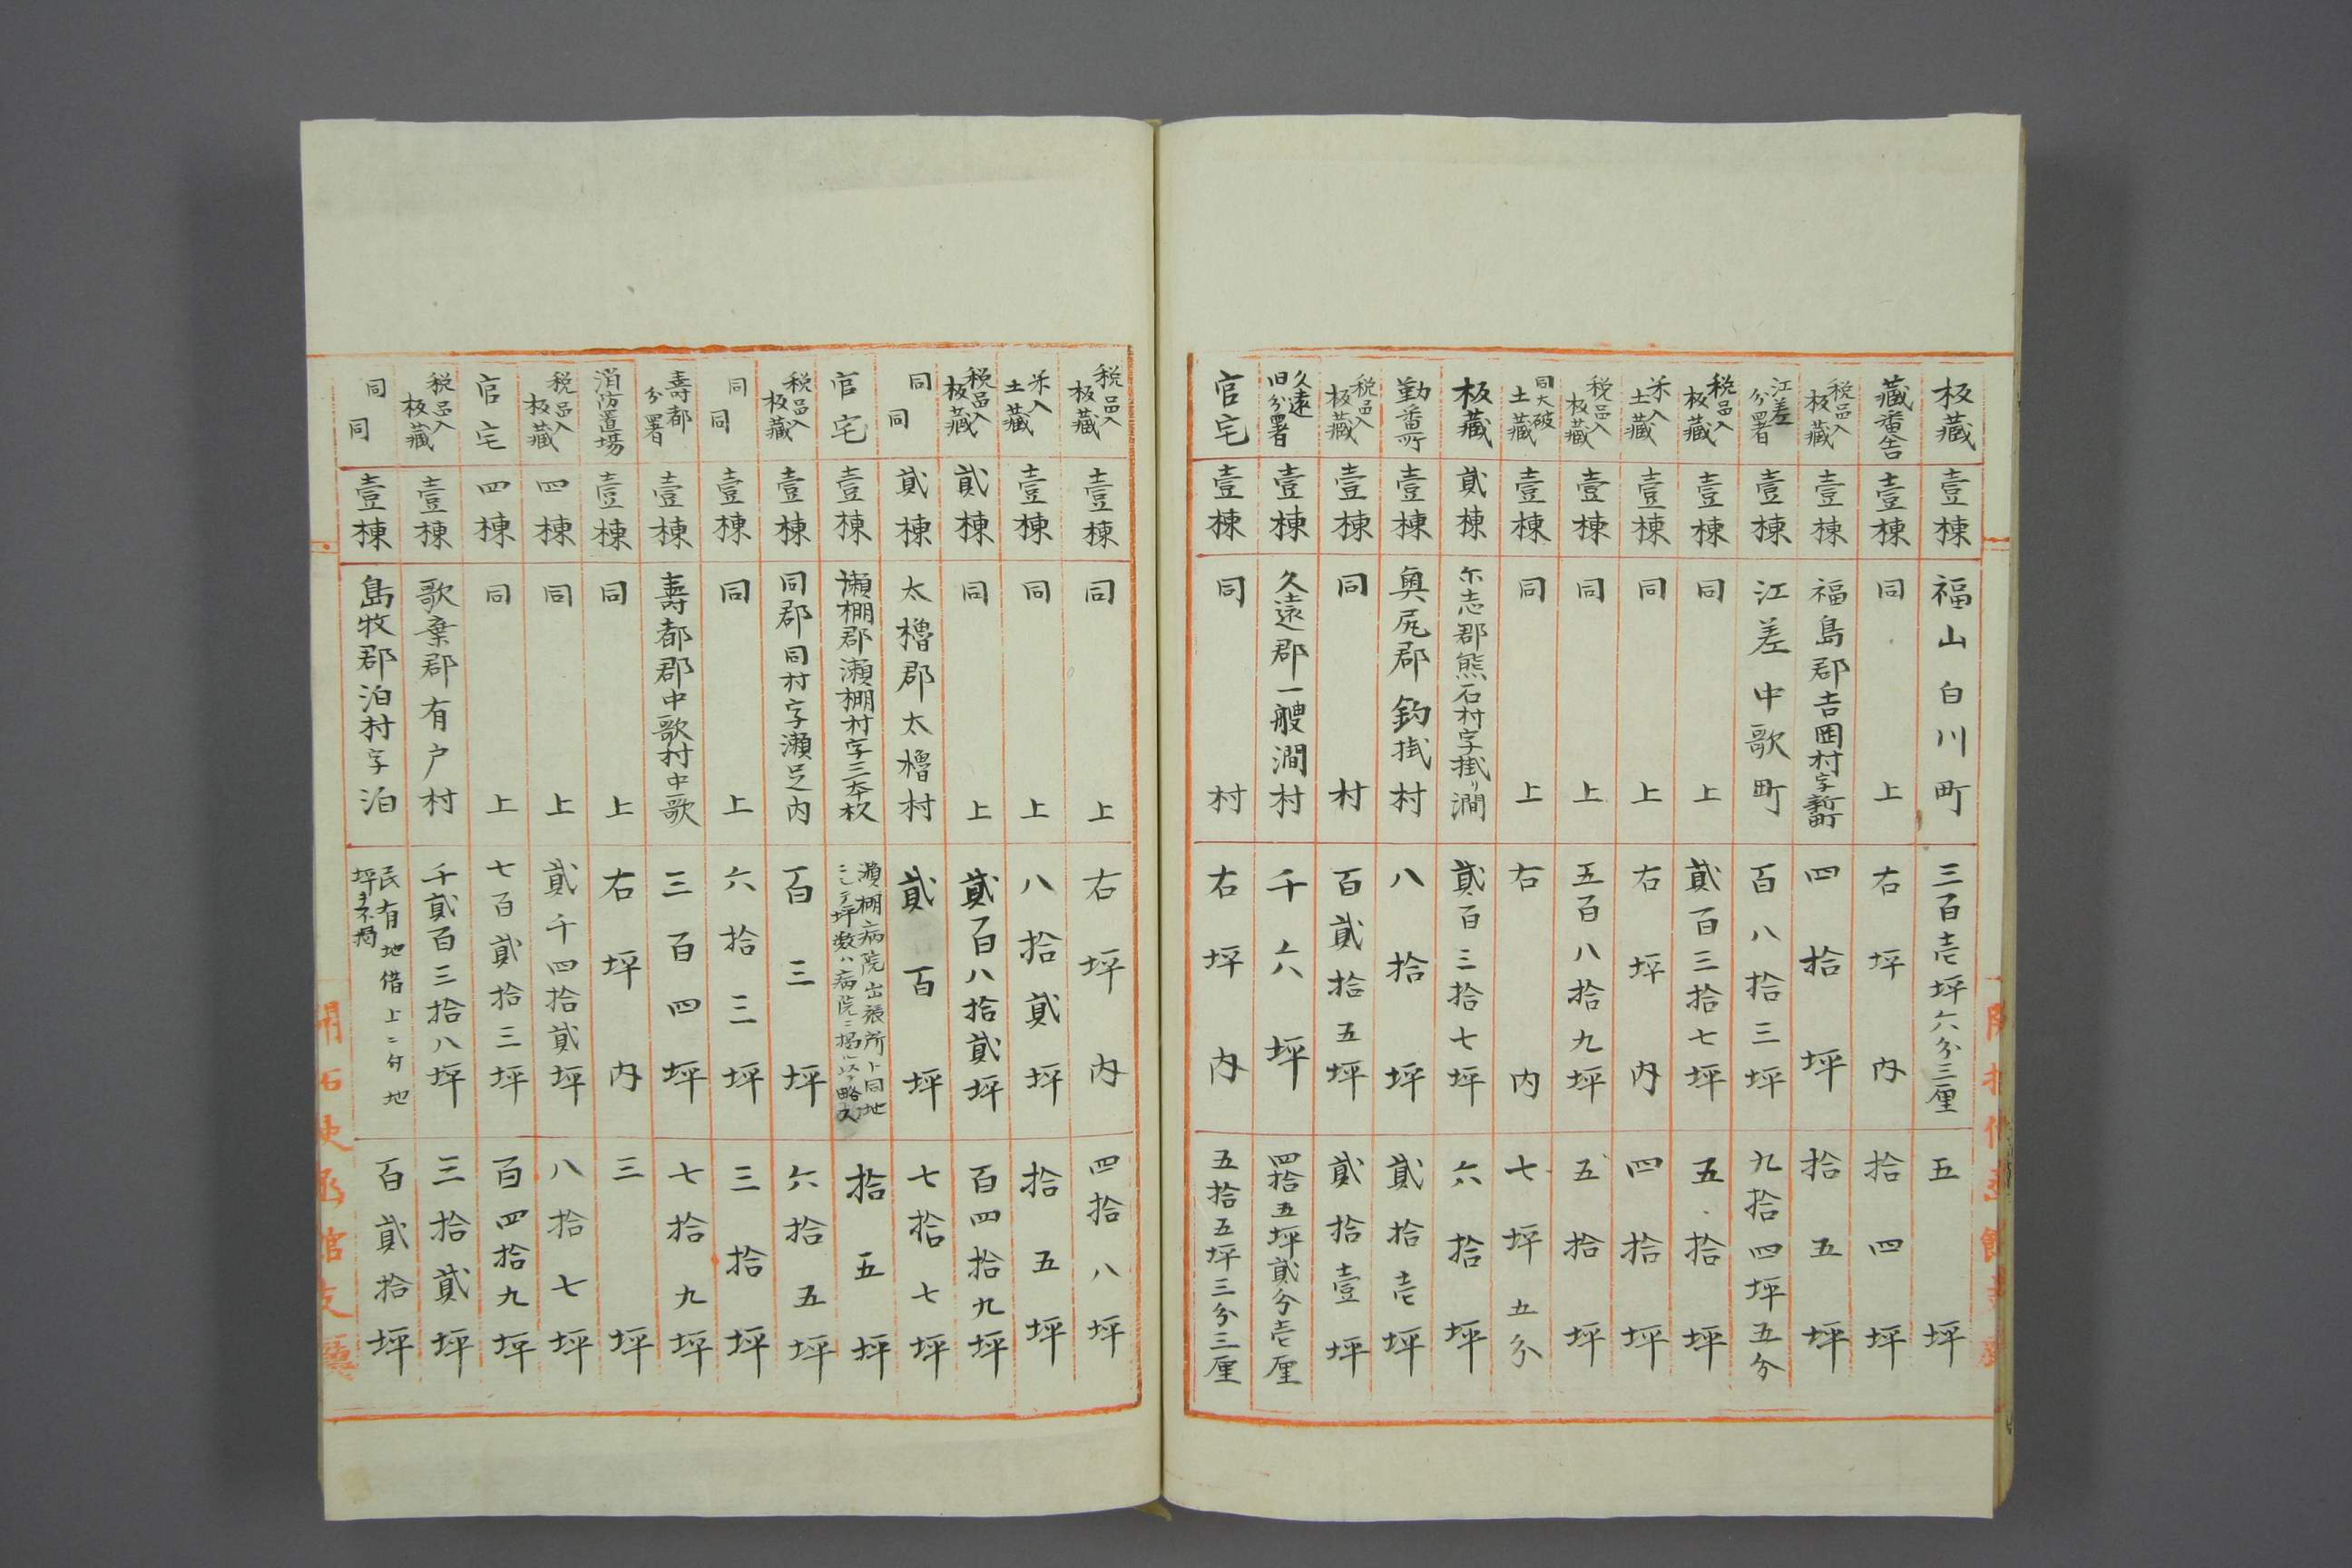 板藏 壹棟 福山白川町 三百壱坪六分三厘 五坪
藏番舎 壹棟 同上 右坪内 拾四坪
税品入板藏 壹棟 福島郡吉岡村字新町 四拾坪 拾五坪
江差分署 壹棟 江差中歌町 百八拾三坪 九拾四坪五分
税品入板藏 壹棟 同上 貳百三拾七坪 五拾坪
米入土藏 壹棟 同上 右坪内 四拾坪
税品入板藏 壹棟 同上 五百八拾九坪 五拾坪
同大破土藏 壹棟 同上 右内 七坪五分
板藏 貳棟 尓志郡熊石村字掛リ澗 貳百三拾七坪 六拾坪
勤番所 壹棟 奥尻郡釣掛村 八拾坪 貳拾壱坪
税品入板藏 壹棟 同村 百貳拾五坪 貳拾壹坪
久遠旧分署 壹棟 久遠郡一艘澗村 千六坪 四拾五坪貳分壱厘
官宅 壹棟 同村 右坪内 五拾五坪三分三厘
税品入板藏 壹棟 同上 右坪内 四拾八坪
米入土藏 壹棟 同上 八拾貳坪 拾五坪
税品入板藏 貳棟 同上 貳百八拾貳坪 百四拾九坪
同同 貳棟 太櫓郡太櫓村 貳百坪 七拾七坪
官宅 壹棟 瀬棚郡瀬棚村字三本杦 瀬棚病院出張所ト同地ニシテ坪数ハ病院ニ掲ル以テ略ス 拾五坪
税品入板藏 壹棟 同郡同村字瀬足内 百三坪 六拾五坪
同同 壹棟 同上 六拾三坪 三拾坪
壽都分署 壹棟 壽都郡中歌村中歌 三百四坪 七拾九坪
消防置場 壹棟 同上 右坪内 三坪
税品入板藏 四棟 同上 貳千四拾貳坪 八拾七坪
官宅 四棟 同上 七百貳拾三坪 百四拾九坪
税品入板藏 壹棟 歌棄郡有户村 千貳百三拾八坪 三拾貳坪
同同 壹棟 島牧郡泊村字泊 民有地借上ニ付地坪ヲ不掲 百貳拾坪